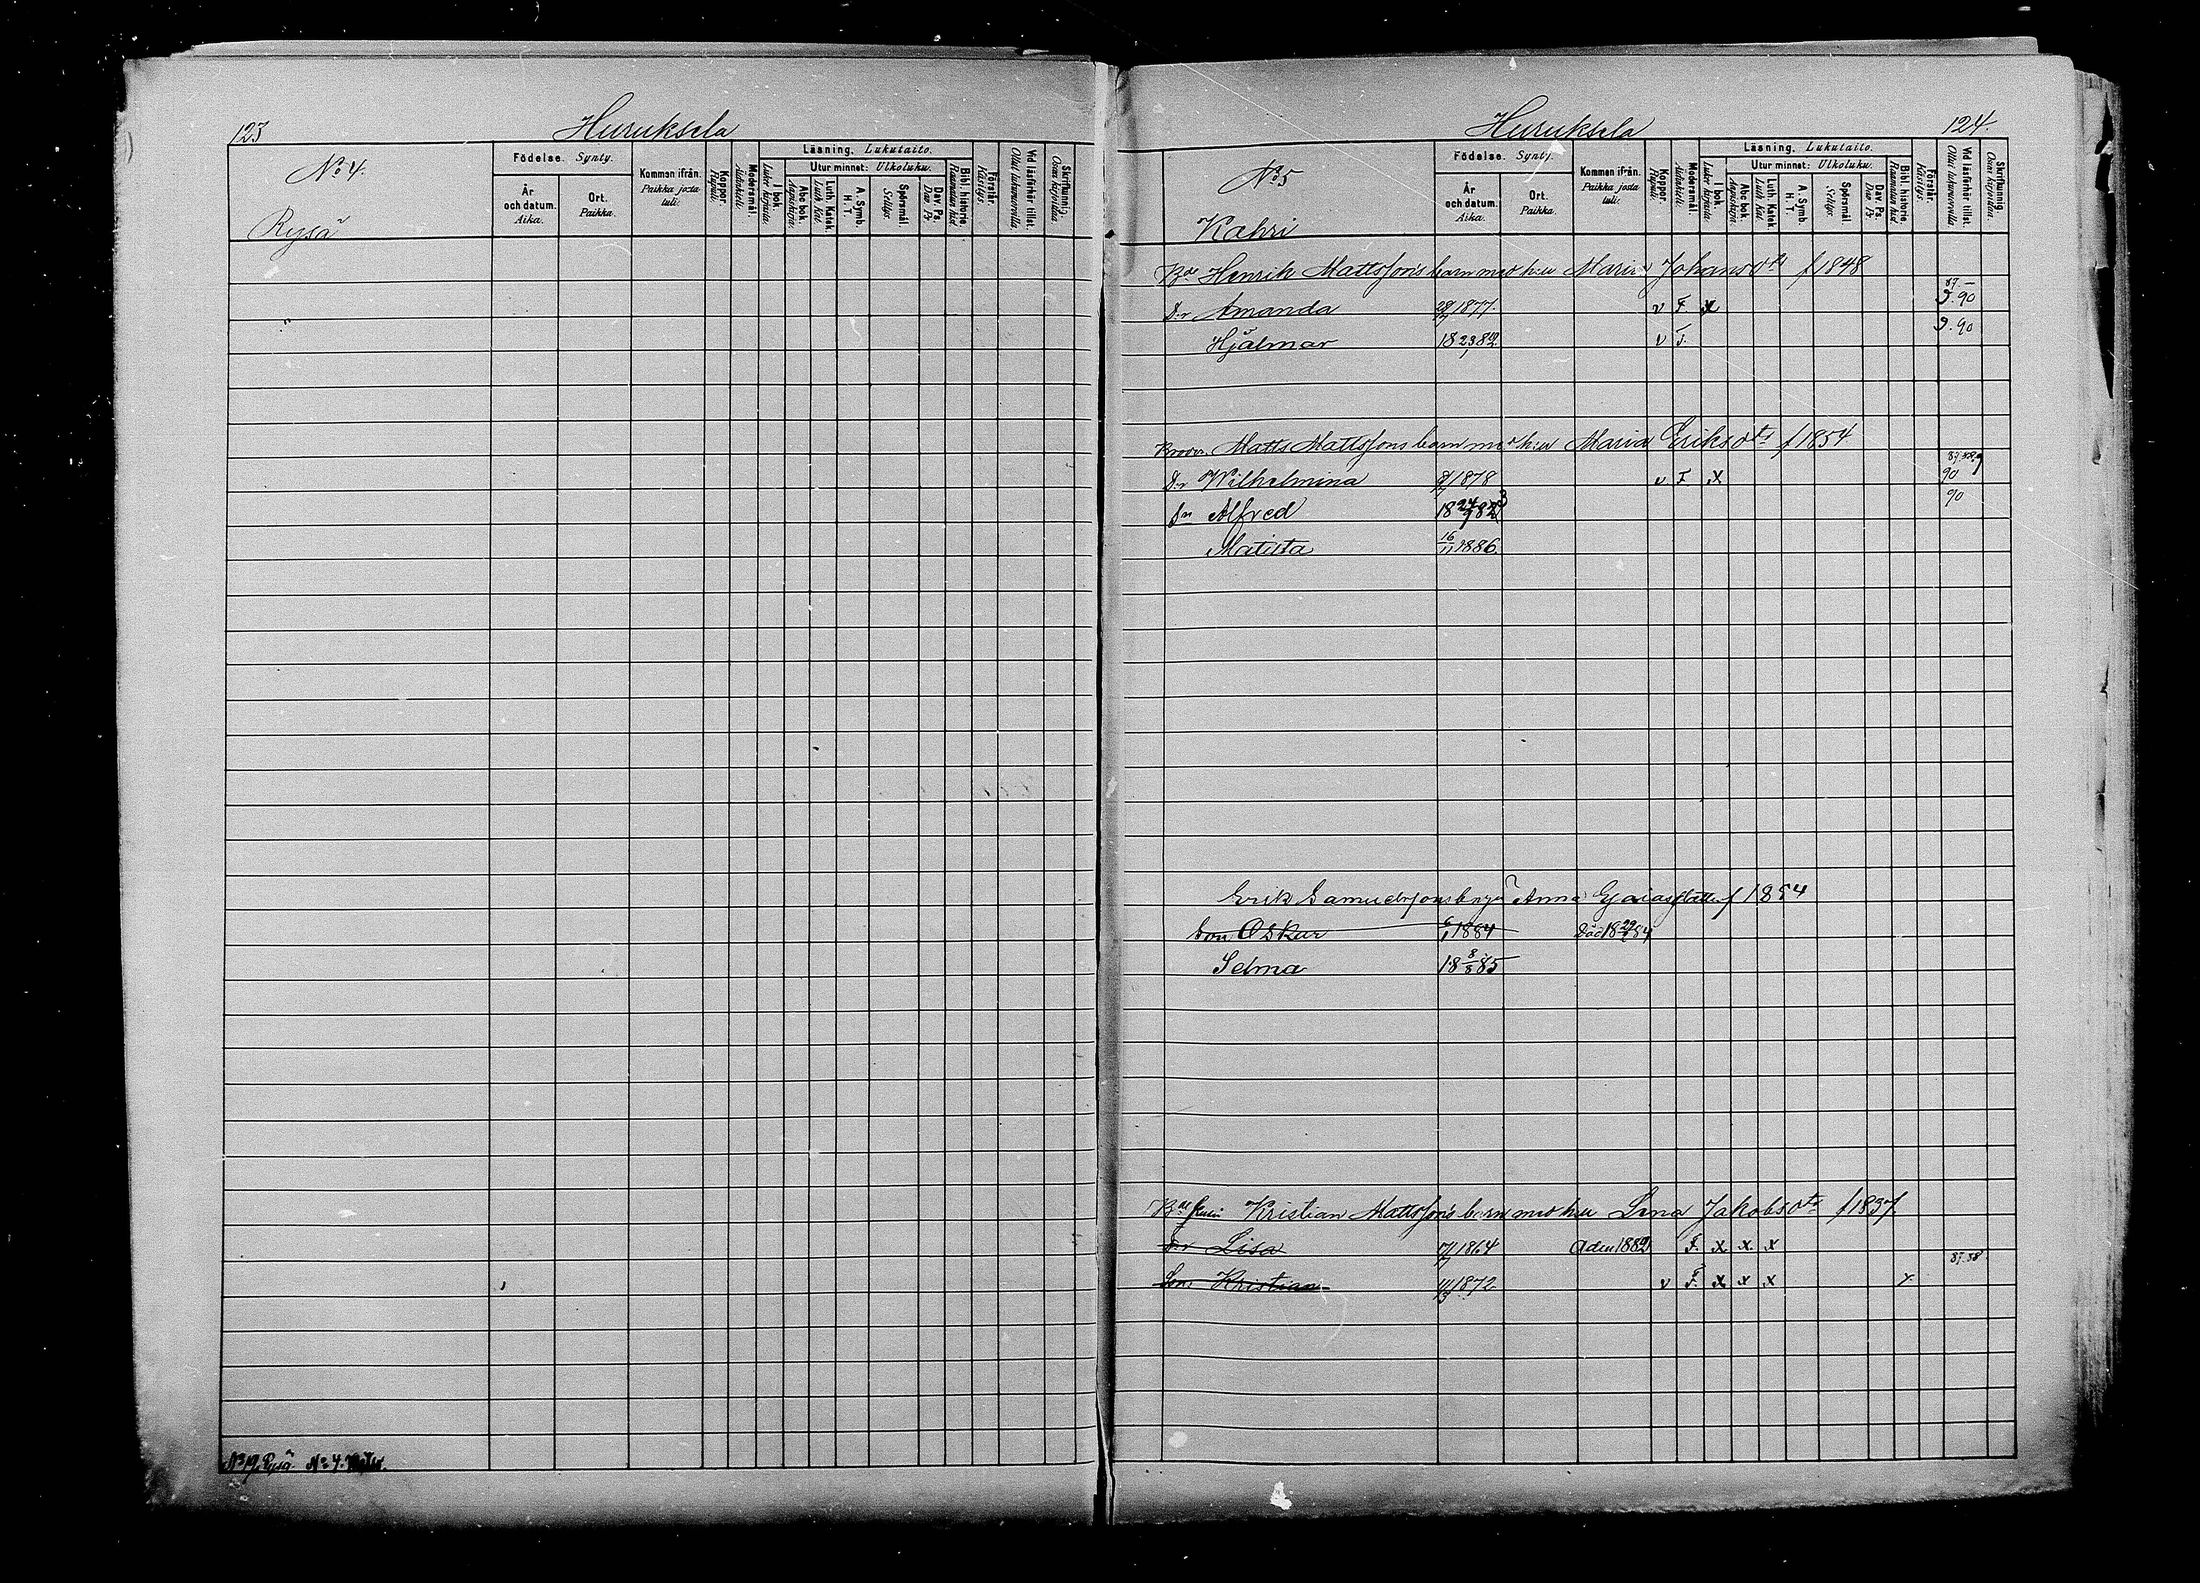 123 Huruksela
Födelse. Synty.
År och datum. Aika.
Ort. Paikka.
Kommen ifrån. Paikka josta tuli.
Koppor. Rupuli.
Modersmål. Äidinkieli.
Läsning. Lukutaito.
I bok. Luku kirjasta.
Utur minnet: Ulkoluku.
Abc bok. Aapiskirja.
Luth. Katek. Luth Kat.
A. Symb. H. T.
Spörsmål. Selitys.
Dav. Ps. Dav. Ps
Bibl. historie. Raamatun hist
Förstår. Käsitys.
Vid läsförhör tillst. Ollut lukusevoilla.
Skrifkunnig. Osaa kirjoittaa.
No 4.
Rysä
No 19. Rysä No 4.
Huruksela 124.
Födelse. Synty.
År och datum. Aika.
Ort. Paikka.
Kommen ifrån. Paikka josta tuli.
Koppor. Rupuli.
Modersmål. Äidinkieli.
Läsning. Lukutaito.
I bok. Luku kirjasta.
Utur minnet: Ulkoluku.
Abc bok. Aapiskirja.
Luth. Katek. Luth Kat.
A. Symb. H. T.
Spörsmål. Selitys.
Dav. Ps. Dav. Ps
Bibl. historie. Raamatun hist
Förstår. Käsitys.
Vid läsförhör tillst.
Skrifkunnig. Osaa kirjoittaa.
No 5
Kahri
Bde Henrik Mattssons barn med h:u Maria Johansdtr f 1848
D:r Amanda 1877. v F x 87.- 9.90
Hjalmar 18 23 82. v F. 9.90
Broder. Matts Mattssons barn med h:u Maria Eriksdtr f 1854
D:r Wilhelmina 1878 v F x 90
Sn Alfred 18 24/9 82 90
Matilta 16/11 1886.
Erik Samuelssons Anna Esaiasdotter f 1854
Son Oskar 6/1 1884 Död 18 84
Selma 18 8/8 85
Bde Kristian Mattssons barn med h:u Lena Jakobsdtr f 1837.
D:r Lisa 1864 Aden 1882 F. x x x
Son Kristian 1872 v F. x x x x 87.88